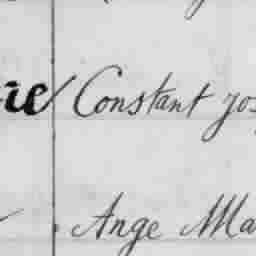 ie Constant jos
Ange Ma